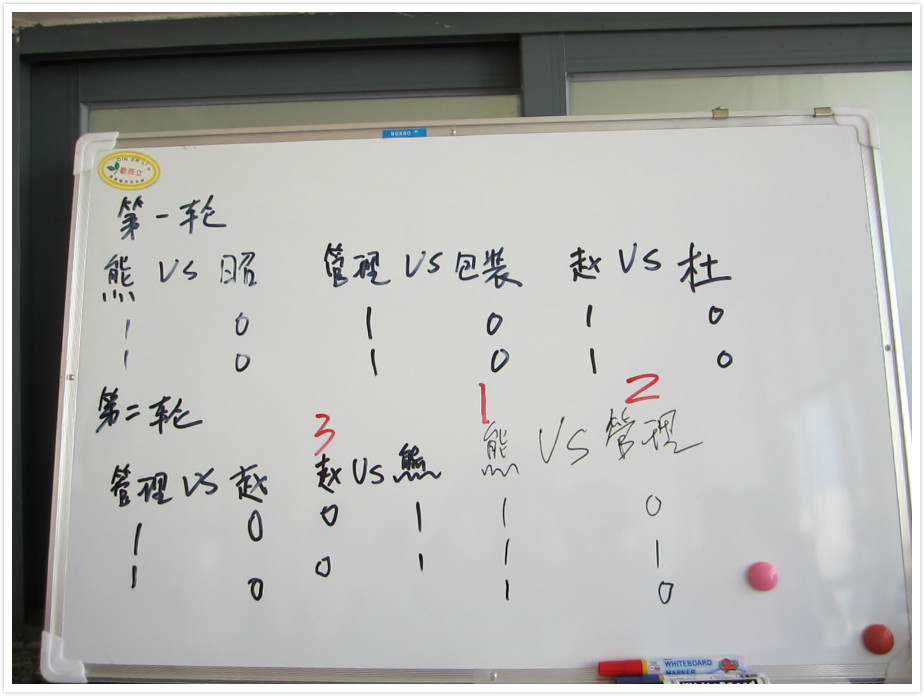 第一轮
熊 VS 昭 管理 VS 包装 赵 VS 杜
1 0 1 0 1 0
1 0 1 0 1 0
第二轮 3 1 2
管理 VS 赵 赵 VS 熊 熊 VS 管理
1 0 0 1 1 0
1 0 0 1 1 1
1 0
WHITEBOARD
MARKER